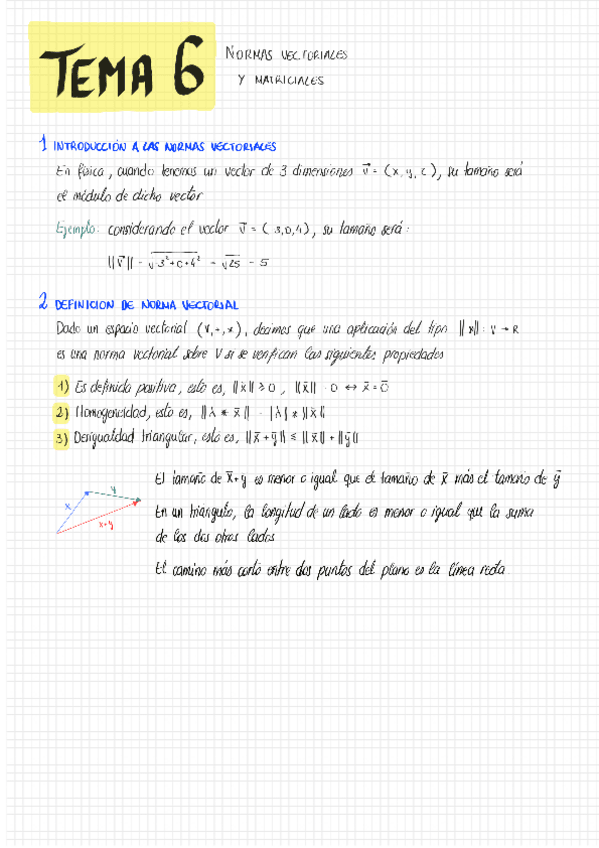 TEMA 6
NORMAS VECTORIALES
Y MATRICIALES
1 INTRODUCCIÓN A LAS NORMAS VECTORIALES
En física, cuando tenemos un vector de 3 dimensiones v⃗ = (x, y, c), su tamaño será
el módulo de dicho vector
Ejemplo: considerando el vector v⃗ = (3,0,4), su tamaño será:
||v⃗|| = √3²+0+4² = √25 = 5
2 DEFINICION DE NORMA VECTORIAL
Dado un espacio vectorial (V,+,*), decimos que una aplicación del tipo ||x||: V → R
es una norma vectorial sobre V si se verifican las siguientes propiedades
1) Es definida positiva, esto es, ||x̄|| ≥ 0, ||x̄|| = 0 ↔ x̄ = 0̄
2) Homogeneidad, esto es, ||λ * x̄|| = |λ| * ||x̄||
3) Desigualdad triangular, esto es, ||x̄ + ȳ|| ≤ ||x̄|| + ||ȳ||
x
y
x+y
El tamaño de x̄+y es menor o igual que el tamaño de x̄ más el tamaño de ȳ
En un triángulo, la longitud de un lado es menor o igual que la suma
de los dos otros lados
El camino más corto entre dos puntos del plano es la línea recta.